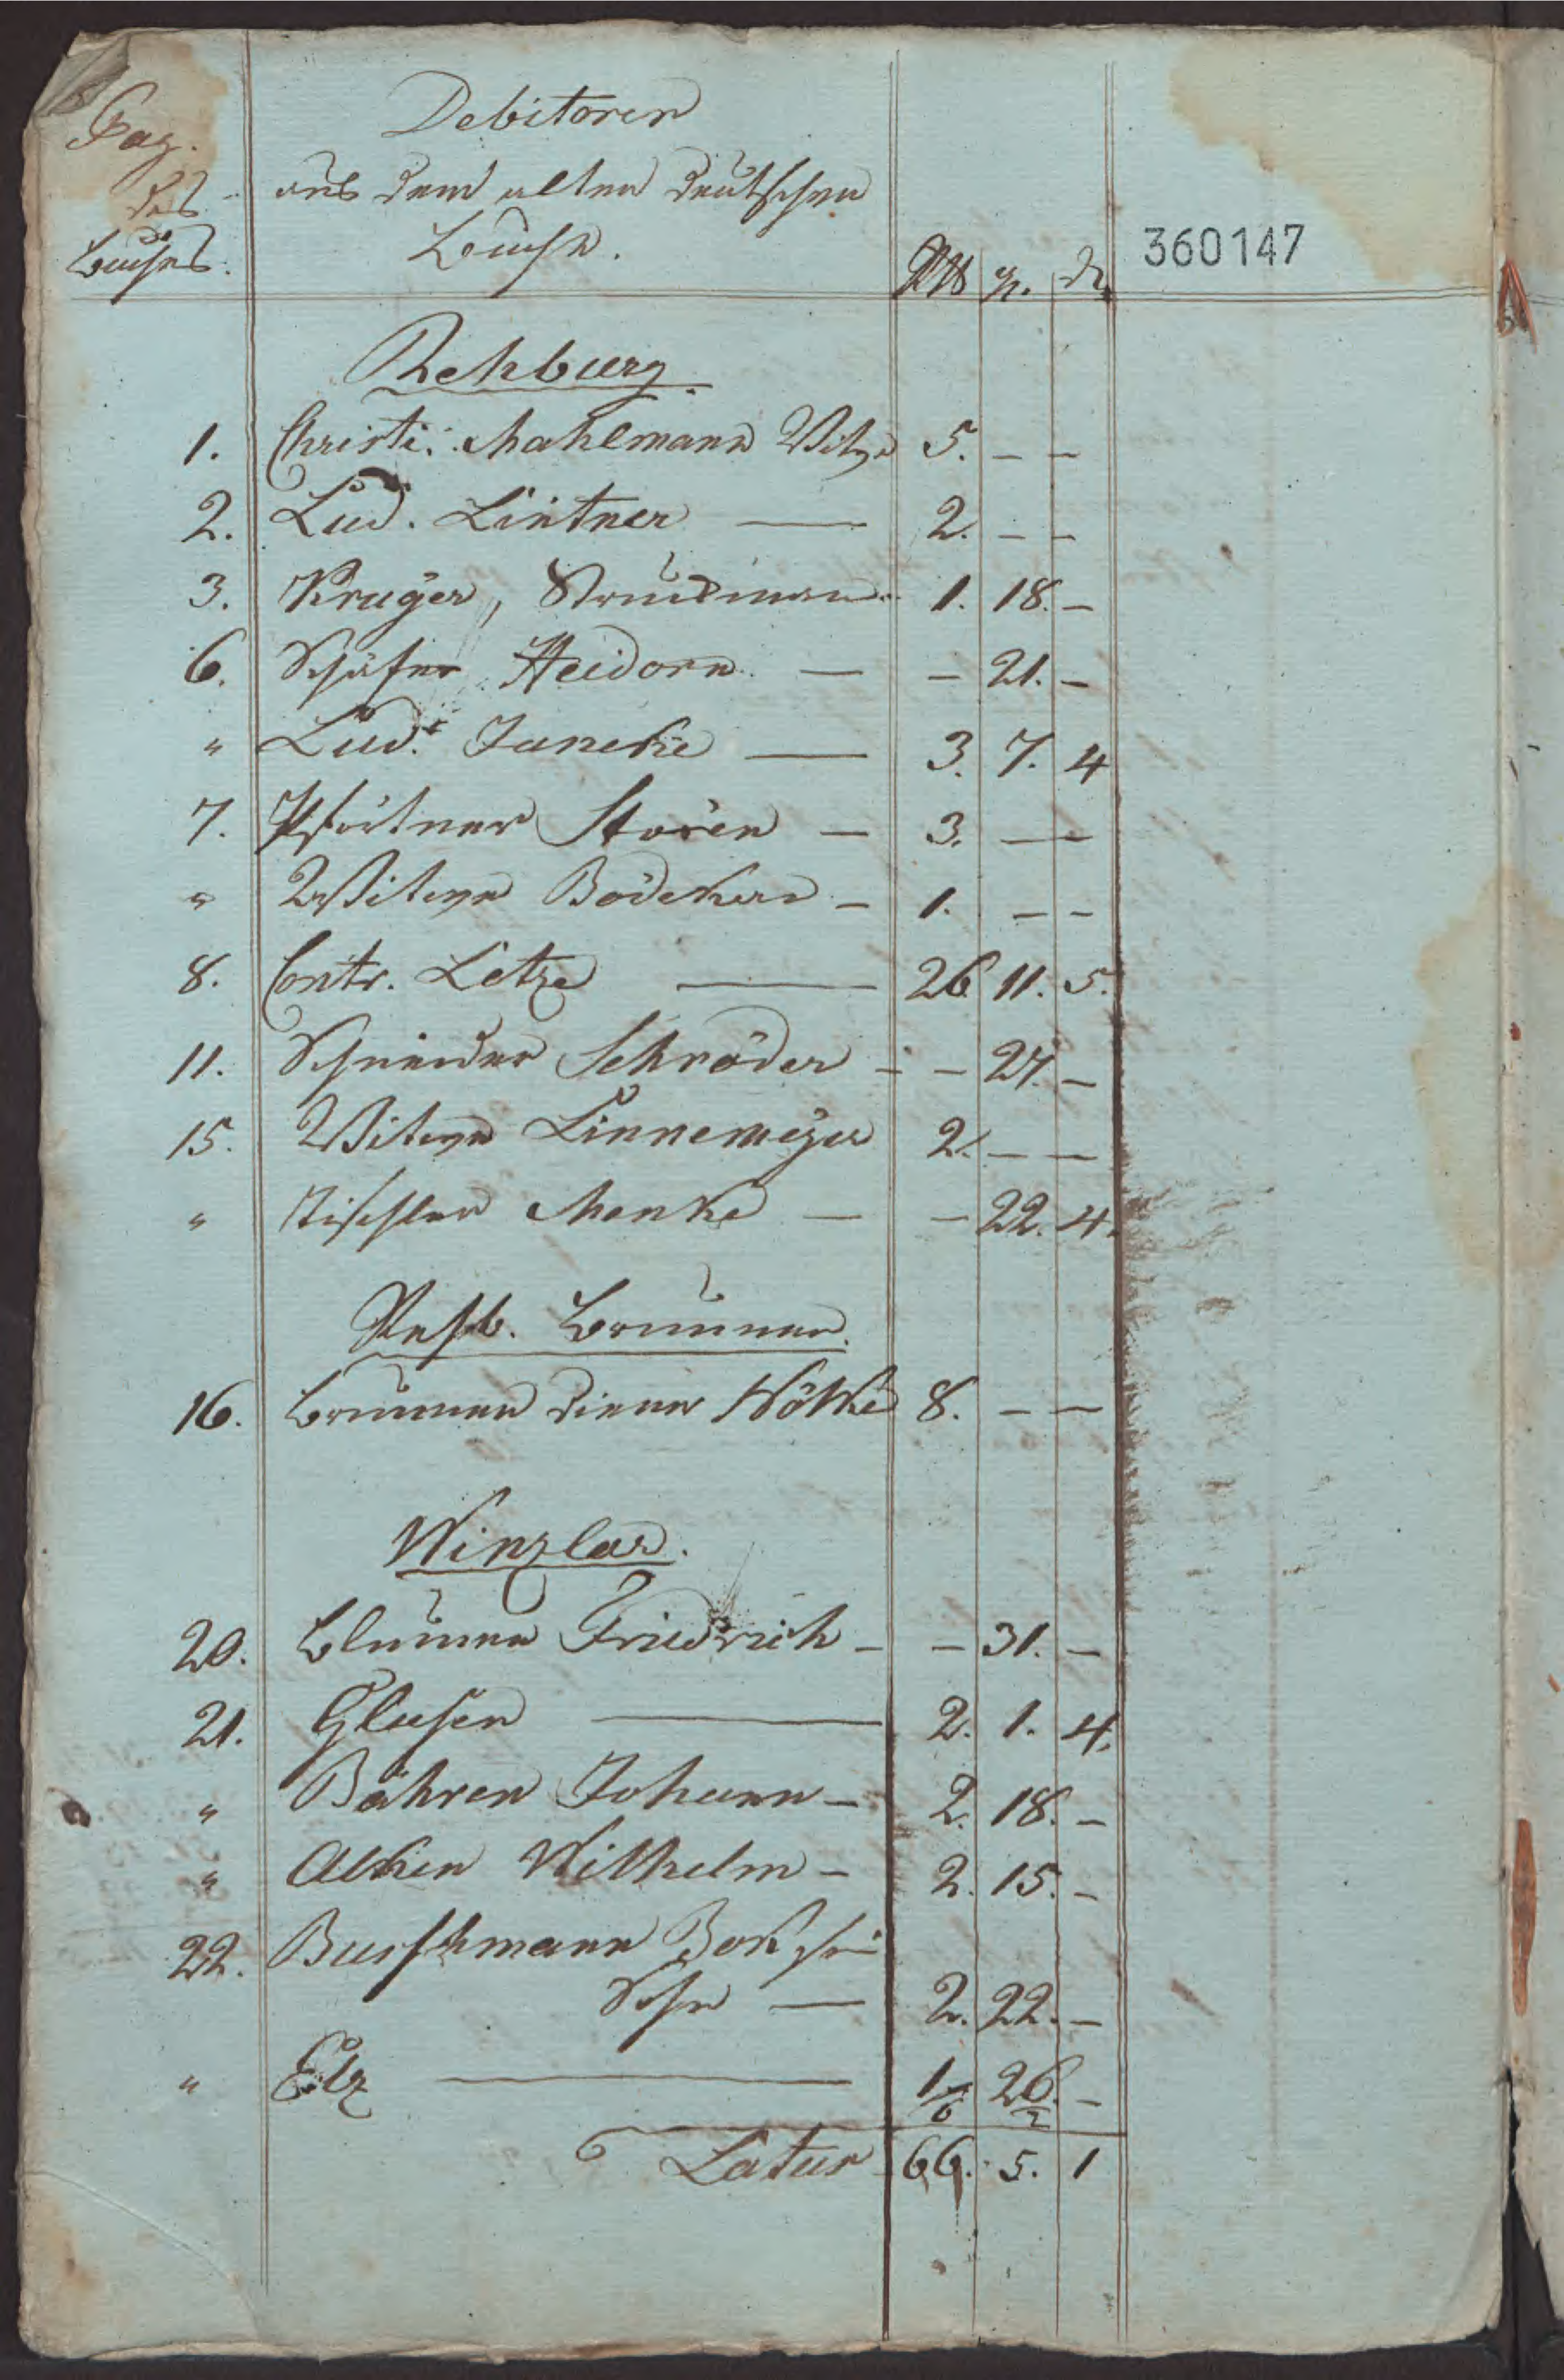 Pag.
des
Buches.
Debitoren
aus dem alten deutschen
Buche.
Rthl gr. d
360147
Rehburg.
1. Christi: Mahlmann Witwe 5. — —
2. Lud. Lintner — 2. — —
3. Krüger, 1. 18. —
6. Schäfer Heidorn — — 21. —
" Lud. Janeke — 3. 7. 4
7. Pförtner Stören — 3. — —
" Witwe Bödeker — 1. — —
8. Contr. Letze — 26 11. 5.
11. Schneider Schröder — — 27. —
15. Witwe Linnemeyer 2. — —
" Tischler Menke — — 22. 4.
Rehb. Brunnen.
16. Brunnen diener Nötke 8. — —
Winzlar.
20. Blumen Friedrich — — 31. —
21. Glusen — 2. 1. 4.
" Bähren Johann — 2. 18. —
" Alken Wilhelm — 2. 15. —
22. Buschmann
— 2. 22. —
" Elz — 1 26. —
6 2
Latus 66. 5. 1